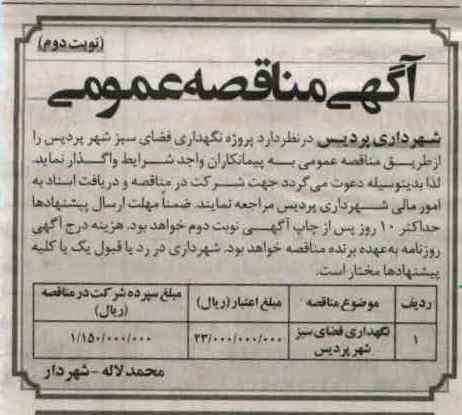 (نوبت دوم)
آگهی مناقصه عمومی
شهرداری پردیس در نظر دارد پروژه نگهداری فضای سبز شهر پردیس را
از طریق مناقصه عمومی به پیمانکاران واجد شرایط واگذار نماید.
لذا بدینوسیله دعوت می گردد جهت شرکت در مناقصه و دریافت اسناد به
امور مالی شهرداری پردیس مراجعه نمایند. ضمناً مهلت ارسال پیشنهادها
حداکثر ۱۰ روز پس از چاپ آگهی نوبت دوم خواهد بود. هزینه درج آگهی
روزنامه به عهده برنده مناقصه خواهد بود. شهرداری در رد یا قبول یک یا کلیه
پیشنهادها مختار است.
ردیف موضوع مناقصه مبلغ اعتبار (ریال) مبلغ سپرده شرکت در مناقصه (ریال)
۱ نگهداری فضای سبز شهر پردیس ۲۳/۰۰۰/۰۰۰/۰۰۰ ۱/۱۵۰/۰۰۰/۰۰۰
محمد لاله - شهردار